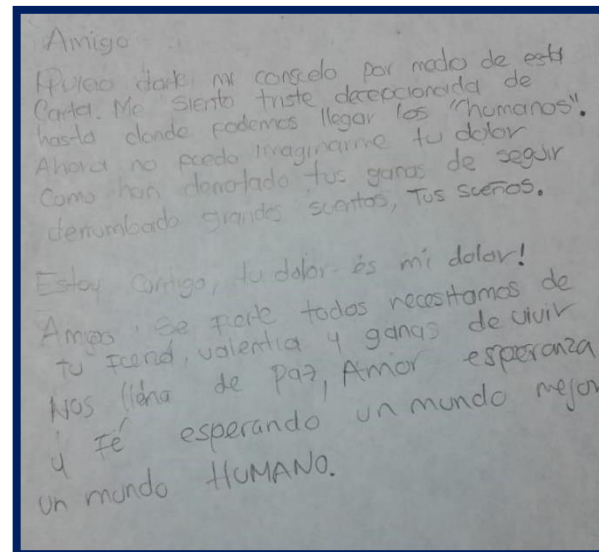 Amigo
Quiero darte mi consuelo por medio de esta
Carta. Me siento triste decepcionada de
hasta donde podemos llegar los "humanos".
Ahora no puedo imaginarme tu dolor
Como han derrotado tus ganas de seguir
derrumbado grandes sueños, Tus sueños.
Estoy contigo, tu dolor es mi dolor!
Amigo se fuerte todos necesitamos de
tu, valentia y ganas de vivir
Nos llena de paz, Amor esperanza
y Fé esperando un mundo mejor
un mundo HUMANO.